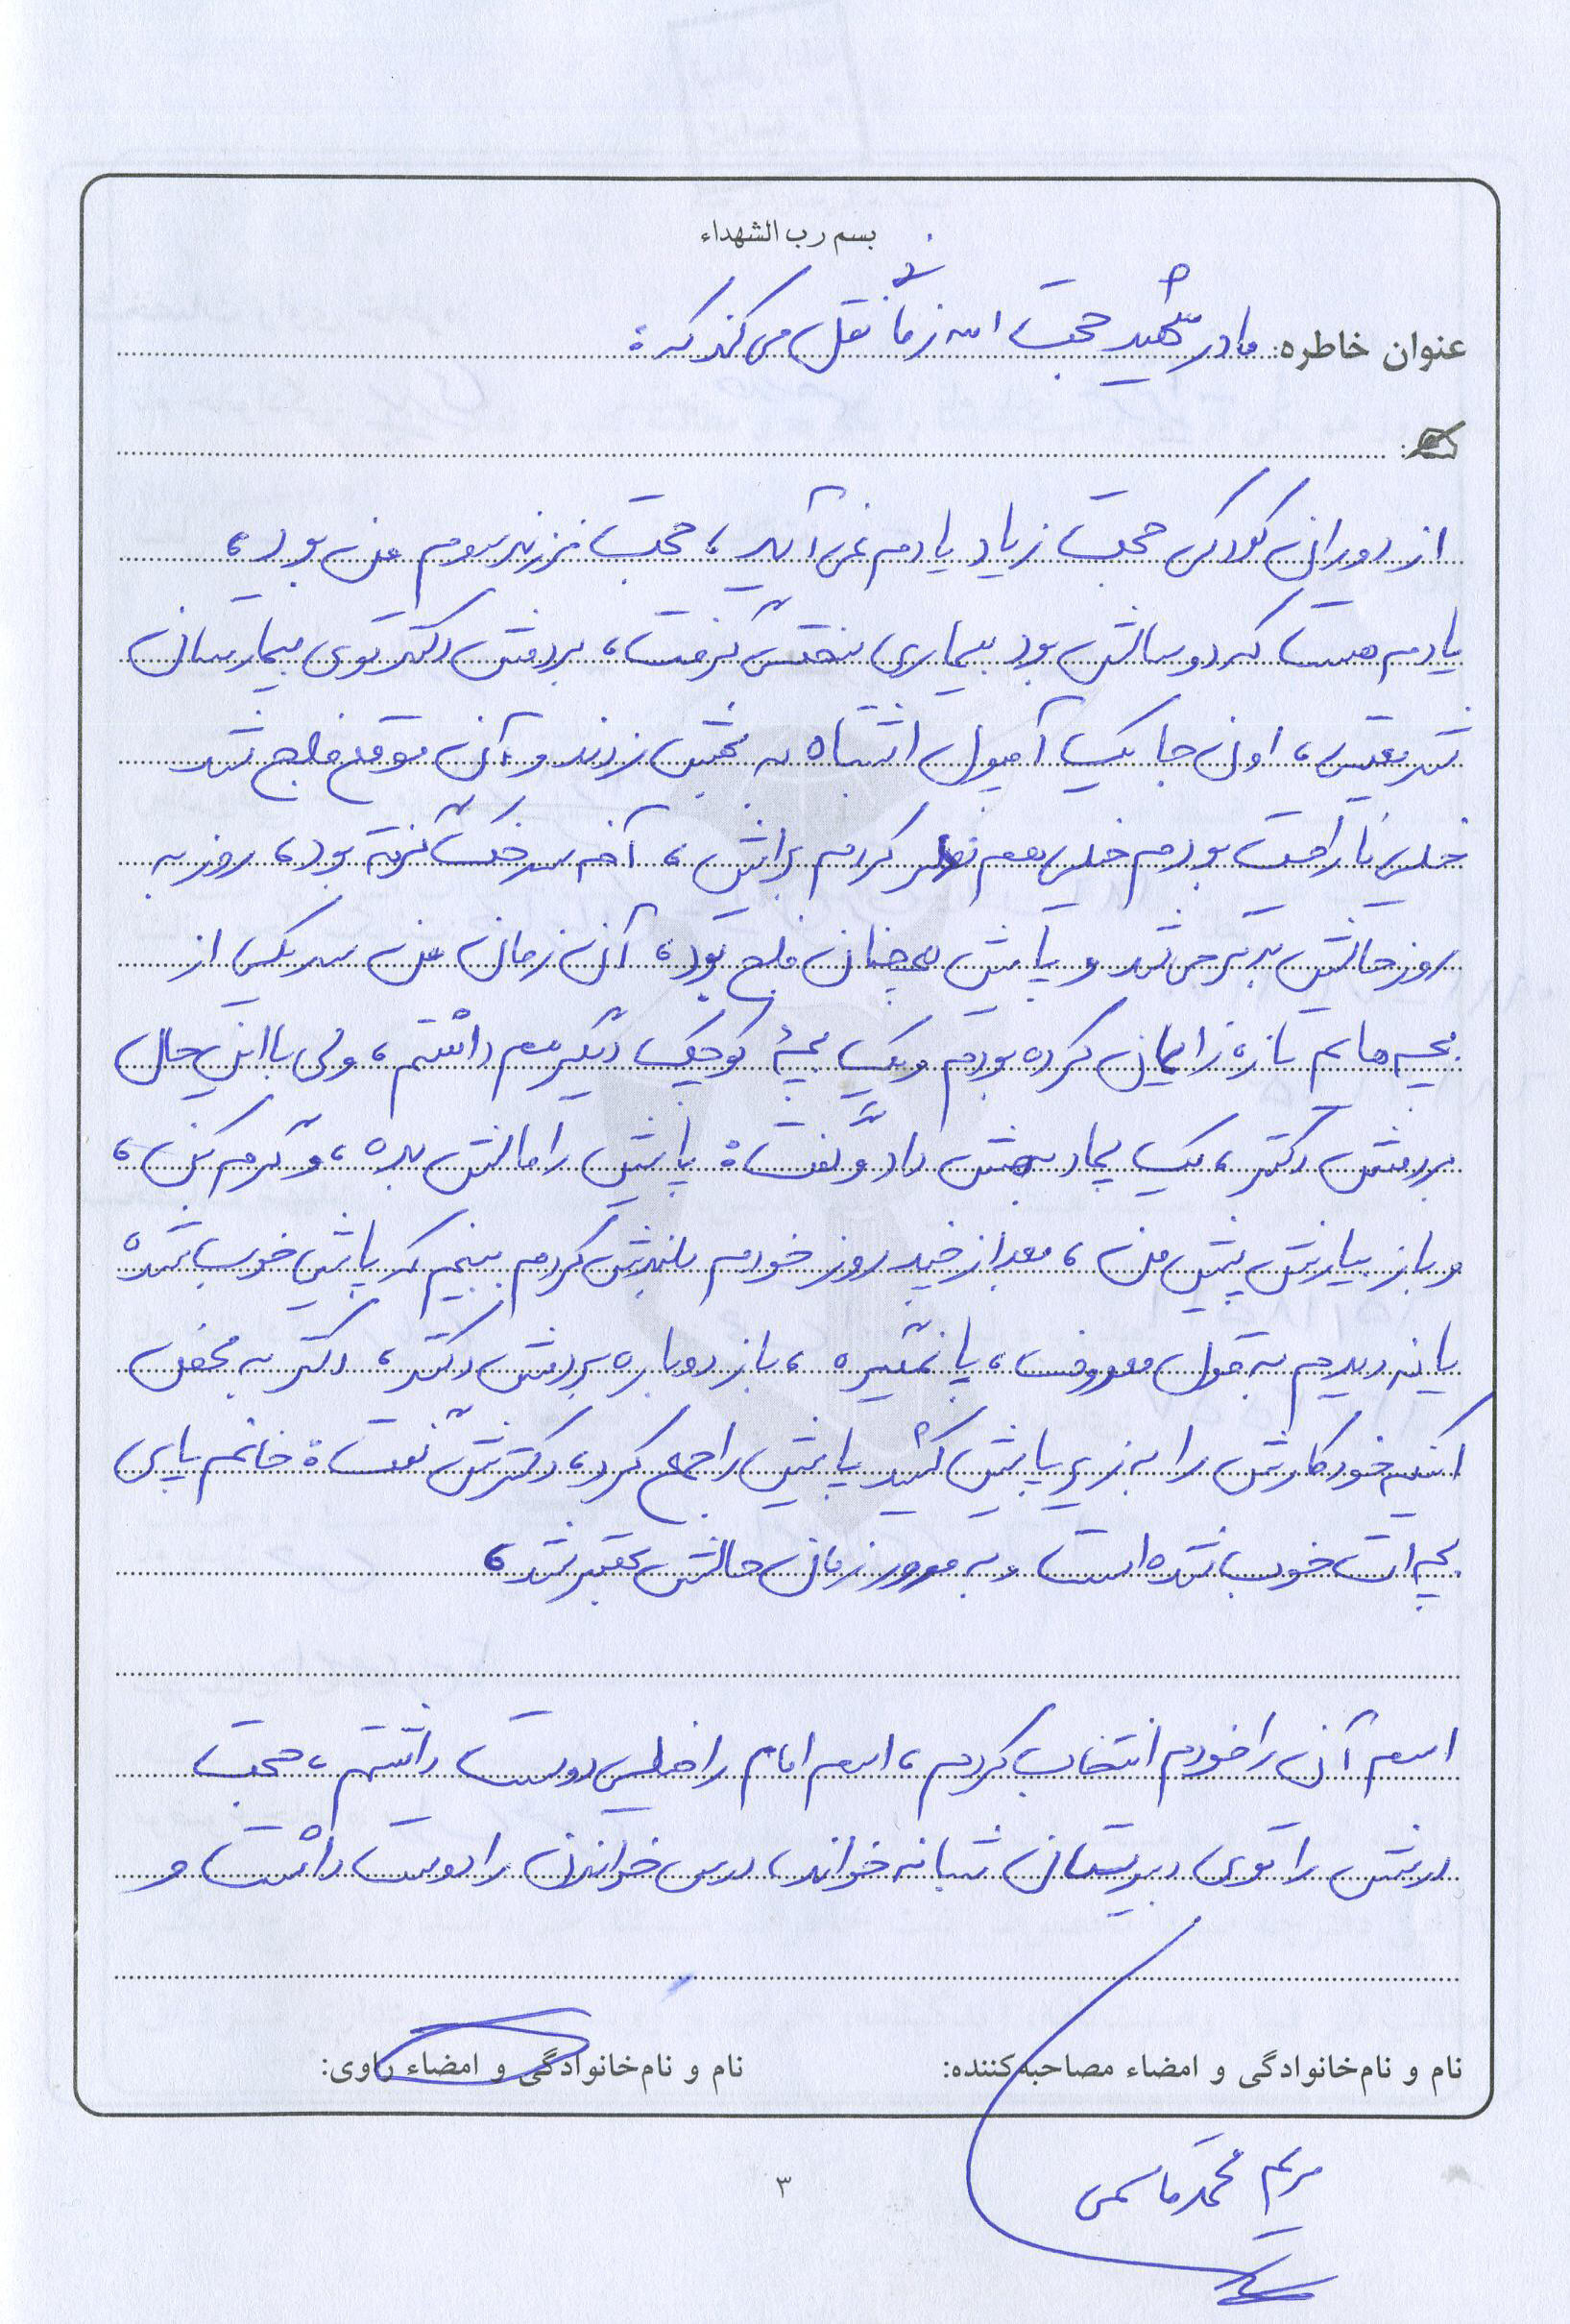 بسم رب الشهداء
عنوان خاطره: مادر شهید حجت اله زمانی نقل می کند که:
از دوران کودکی حجت زیاد یادم نمی آید، حجت فرزند سوم من بود،
یادم هست که دو سالش بود بیماری سختی گرفت، بردمش دکتر توی بیمارستان
شریعتی، اون جا یک آمپول اشتباه به بچش زدند و آن موقع فلج شد
خیلی ناراحت بودم خیلی هم نذر کردم برایش، آخه سرخک گرفته بود، روز به
روز حالش بدتر می شد و پایش همچنان فلج بود، آن زمان من سر یکی از
بچه هایم تازه زایمان کرده بودم و یک بچۀ کوچک دیگر هم داشتم، ولی با این حال
بردمش دکتر، یک پماد بهش داد و گفت: پایش را مالش بده، و گرم کن،
و باز بیارش پیش من، بعد از چند روز خودم بلندش کردم ببینم که پایش خوب شده
یا نه دیدم به قول معروف، پا نمیگیره، باز دوباره بردمش دکتر، دکتر به محض
اینکه خودکارش را به زیر پایش کشید پایش را جمع کرد، دکترش گفت: خانم پای
بچه ات خوب شده است و به مرور زمان حالش بهتر شد،
اسم آن را خودم انتخاب کردم، اسم امام را خیلی دوست داشتم، حجت
درسش را توی دبیرستان شبانه خواند، درس خواندن را دوست داشت و
نام و نام‌خانوادگی و امضاء مصاحبه‌کننده: نام و نام‌خانوادگی و امضاء راوی:
مریم محمدقاسمی
۳